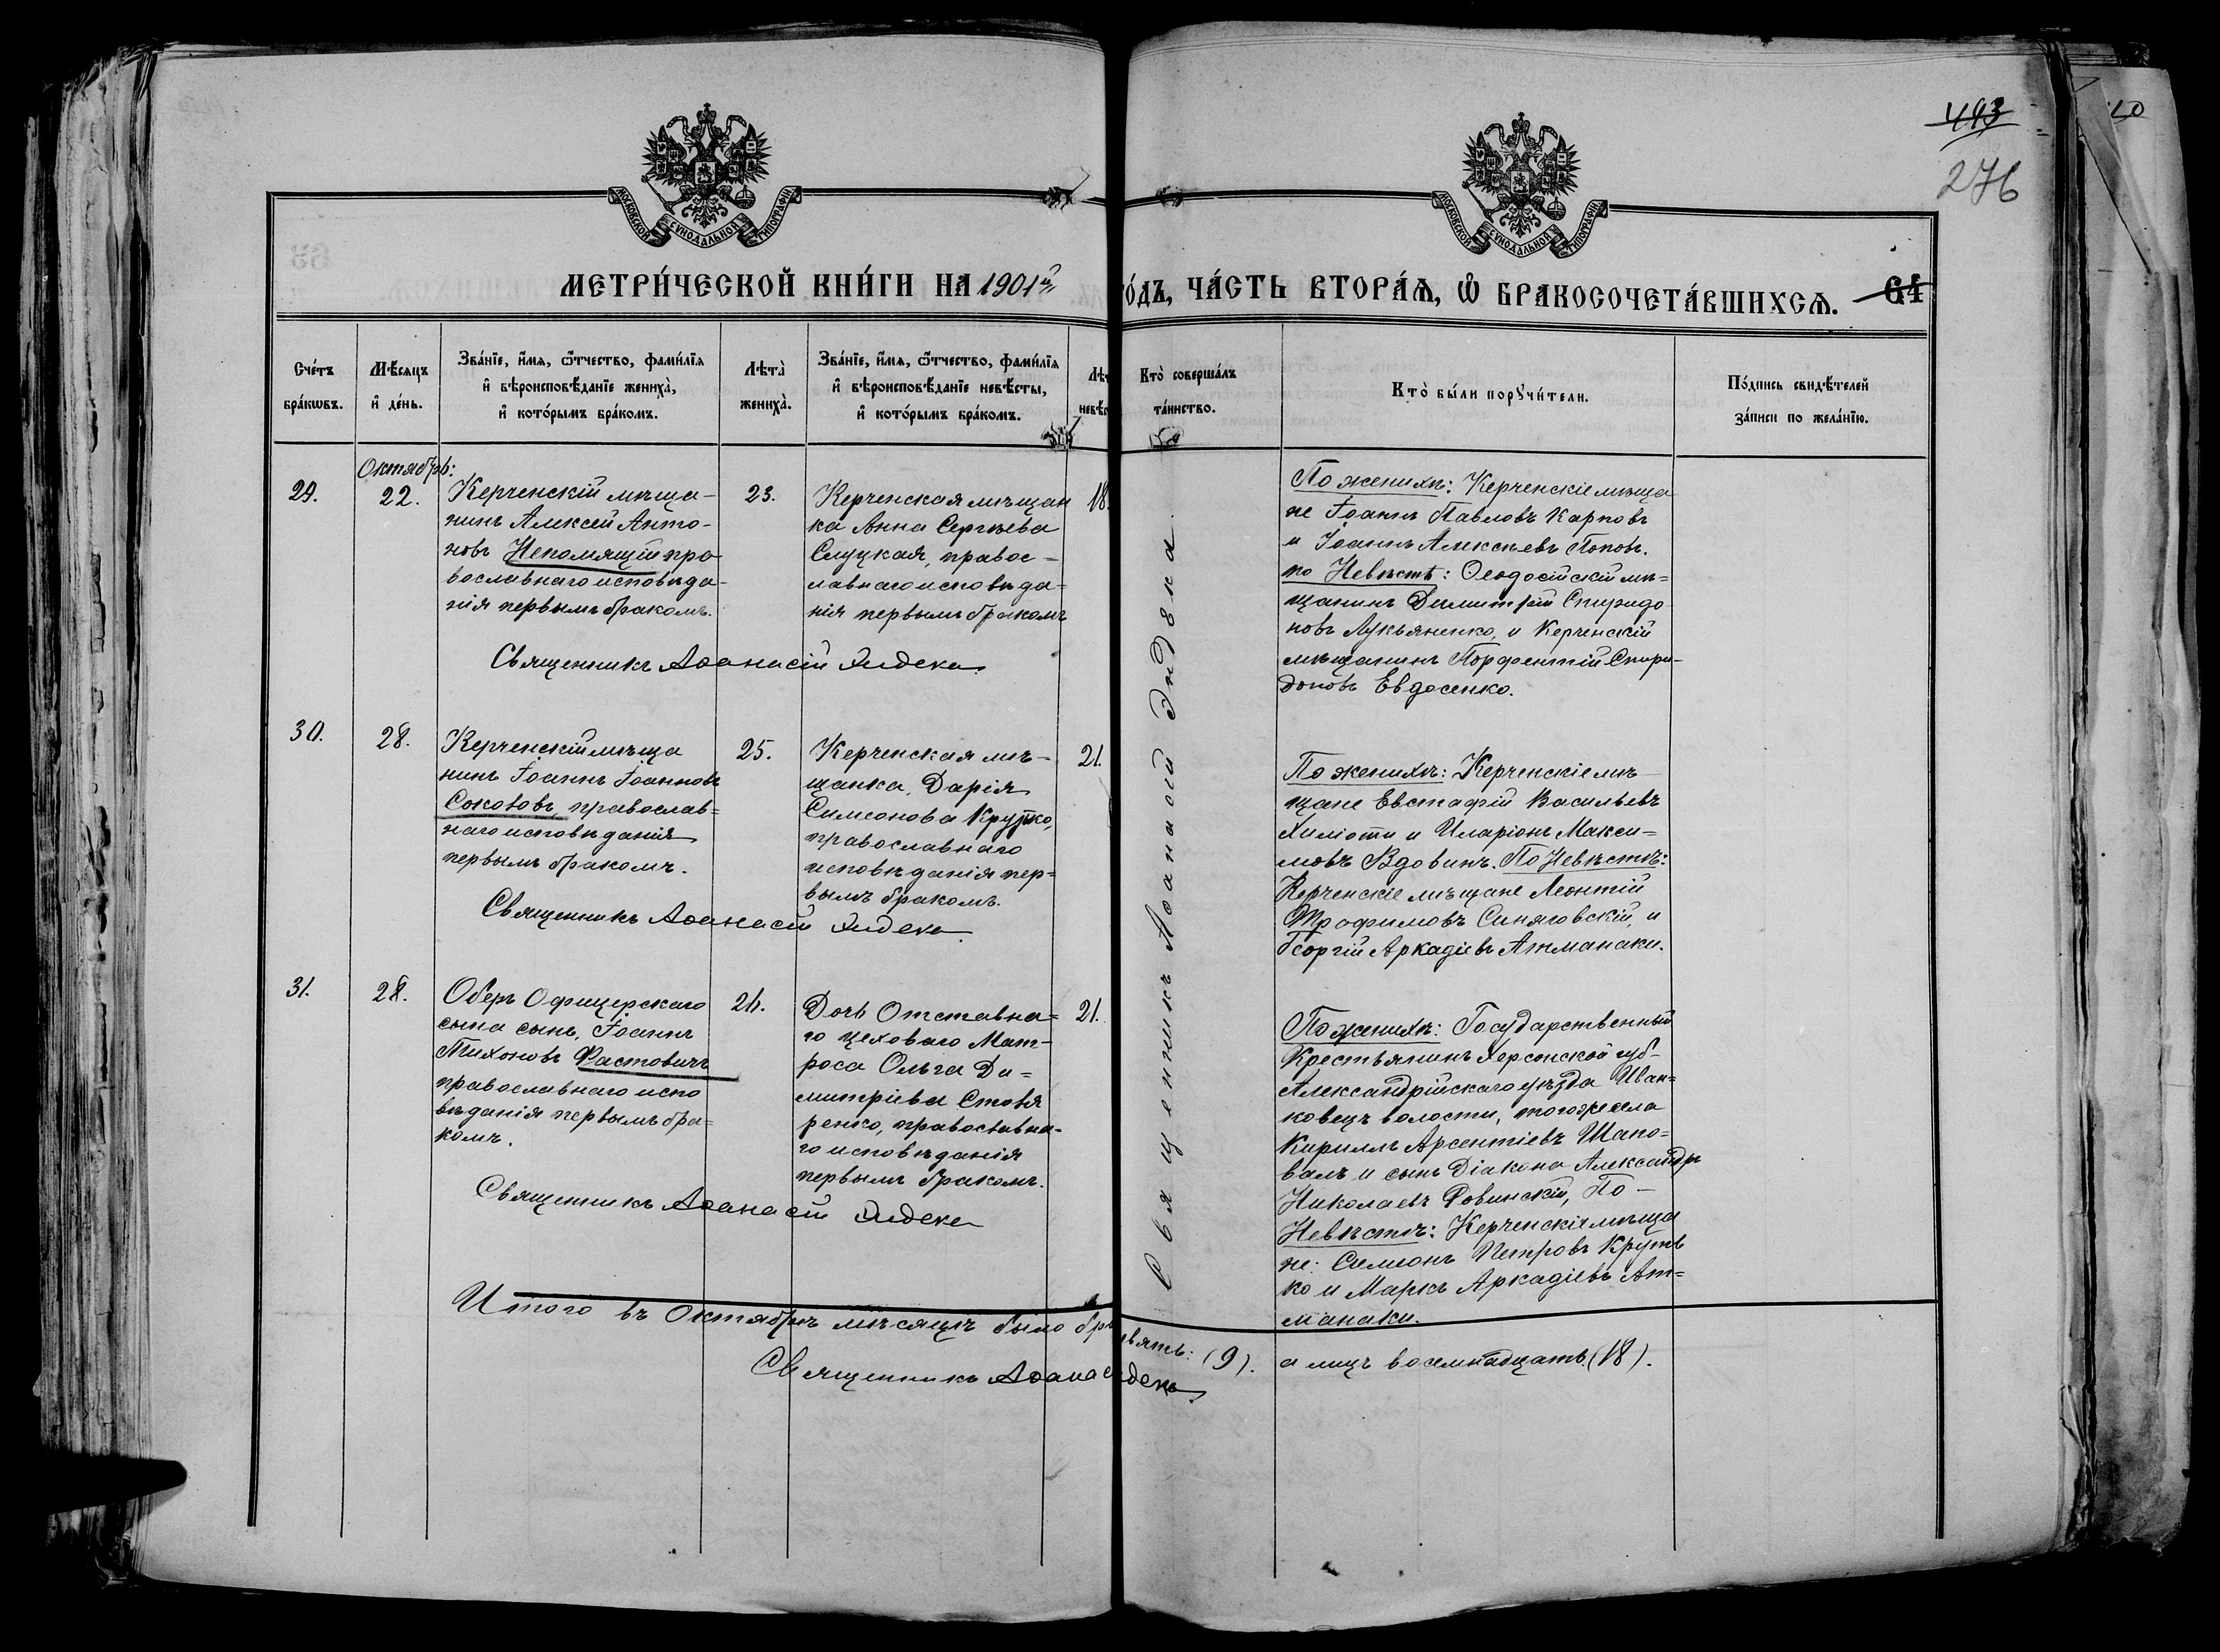 493
276
МОСКОВСКОЙ СѴНОДАЛЬНОЙ ТИПОГРАФІИ
МОСКОВСКОЙ СѴНОДАЛЬНОЙ ТИПОГРАФІИ
МЕТРИ́ЧЕСКОЙ КНИ́ГИ НА 1901й
О́ДЪ, ЧА́СТЬ ВТОРА́Ѧ, Ѽ БРАКОСОЧЕТА́ВШИХСѦ. 64
Сче́тъ бра́кѡвъ.
Мѣ́сяцъ и҆ де́нь.
Зва́нїе, и҆́мѧ, ѻ҆́тчество, фами́лїѧ и҆ вѣроисповѣ́данїе жениха̀, и҆ кото́рымъ бра́комъ.
Лѣта̀ жениха̀.
Зва́нїе, и҆́мѧ, ѻ҆́тчество, фами́лїѧ и҆ вѣроисповѣ́данїе невѣ́сты, и҆ кото́рымъ бра́комъ.
Лѣт
невѣс
Кто̀ соверша́лъ та́инство.
Кто̀ бы́ли порꙋчи́тели.
По́дпись свидѣ́телей за́писи по жела́нїю.
Октябрь:
29.
22.
Керченскій мѣща-
нинъ Алексей Анто-
новъ Непомящій пра-
вославнаго исповѣда-
нія первымъ бракомъ.
23.
Керченская мѣщан
ка Анна Сергѣева
Слуцкая, правос-
лавнаго исповѣда-
нія первымъ бракомъ
18.
По женихѣ: Керченскіе мѣща
не Іоаннъ Павловъ Карповъ
и Іоаннъ Алексѣевъ Поповъ.
по Невѣстѣ: Ѳеодосійскій мѣ=
щанинъ Димитрій Спиридо
новъ Лукьяненко, и Керченскій
мѣщанинъ Порфентій Спири-
доновъ Евдосенко.
Священникъ Аѳанасій Яндека.
30.
28.
Керченскій мѣща
нинъ Іоаннъ Іоанновъ
Соколовъ, православ=
наго исповѣданія
первымъ бракомъ.
25.
Керченская мѣ-
щанка, Дарія
Симеонова Крутко,
православнаго
исповѣданія пер=
вымъ бракомъ.
21.
По женихѣ: Керченскіе мѣ-
щане Евстафій Васильевъ
Хиліоти и Иларіонъ Макси=
мовъ Вдовинъ. По Невѣстѣ:
Керченскіе мѣщане Леонтій
Трофимовъ Синяговскій, и
Георгій Аркадіевъ Атманаки.
Священникъ Аѳанасій Яндека
31.
28.
Оберъ Офицерскаго
сына сынъ, Іоаннъ
Тихоновъ Фастовичъ
православнаго испо
вѣданія первымъ бра=
комъ.
26.
Дочь Отставна=
го цеховаго Мат-
роса Ольга Ди=
митріева Столя
ренко, православна-
го исповѣданія
первымъ бракомъ.
21.
По женихѣ: Государственный
Крестьянинъ Херсонской губ-
Александрійскаго уѣзда Иван=
ковецъ волости, того же села
Кириллъ Арсентіевъ Шапо=
валъ и сынъ Діакона Александръ
Николаевъ Ровинскій, По-
Невѣстѣ: Керченскіе мѣща
не: Симеонъ Петровъ Круть
ко и Маркъ Аркадіевъ Ат=
манаки.
Священникъ Аѳанасій Яндека
Священникъ Аѳанасій Яндека.
Итого въ Октябрѣ мѣсяцѣ было бра вять: (9). а лицъ восемнадцать (18).
Священникъ Аѳанас ндека